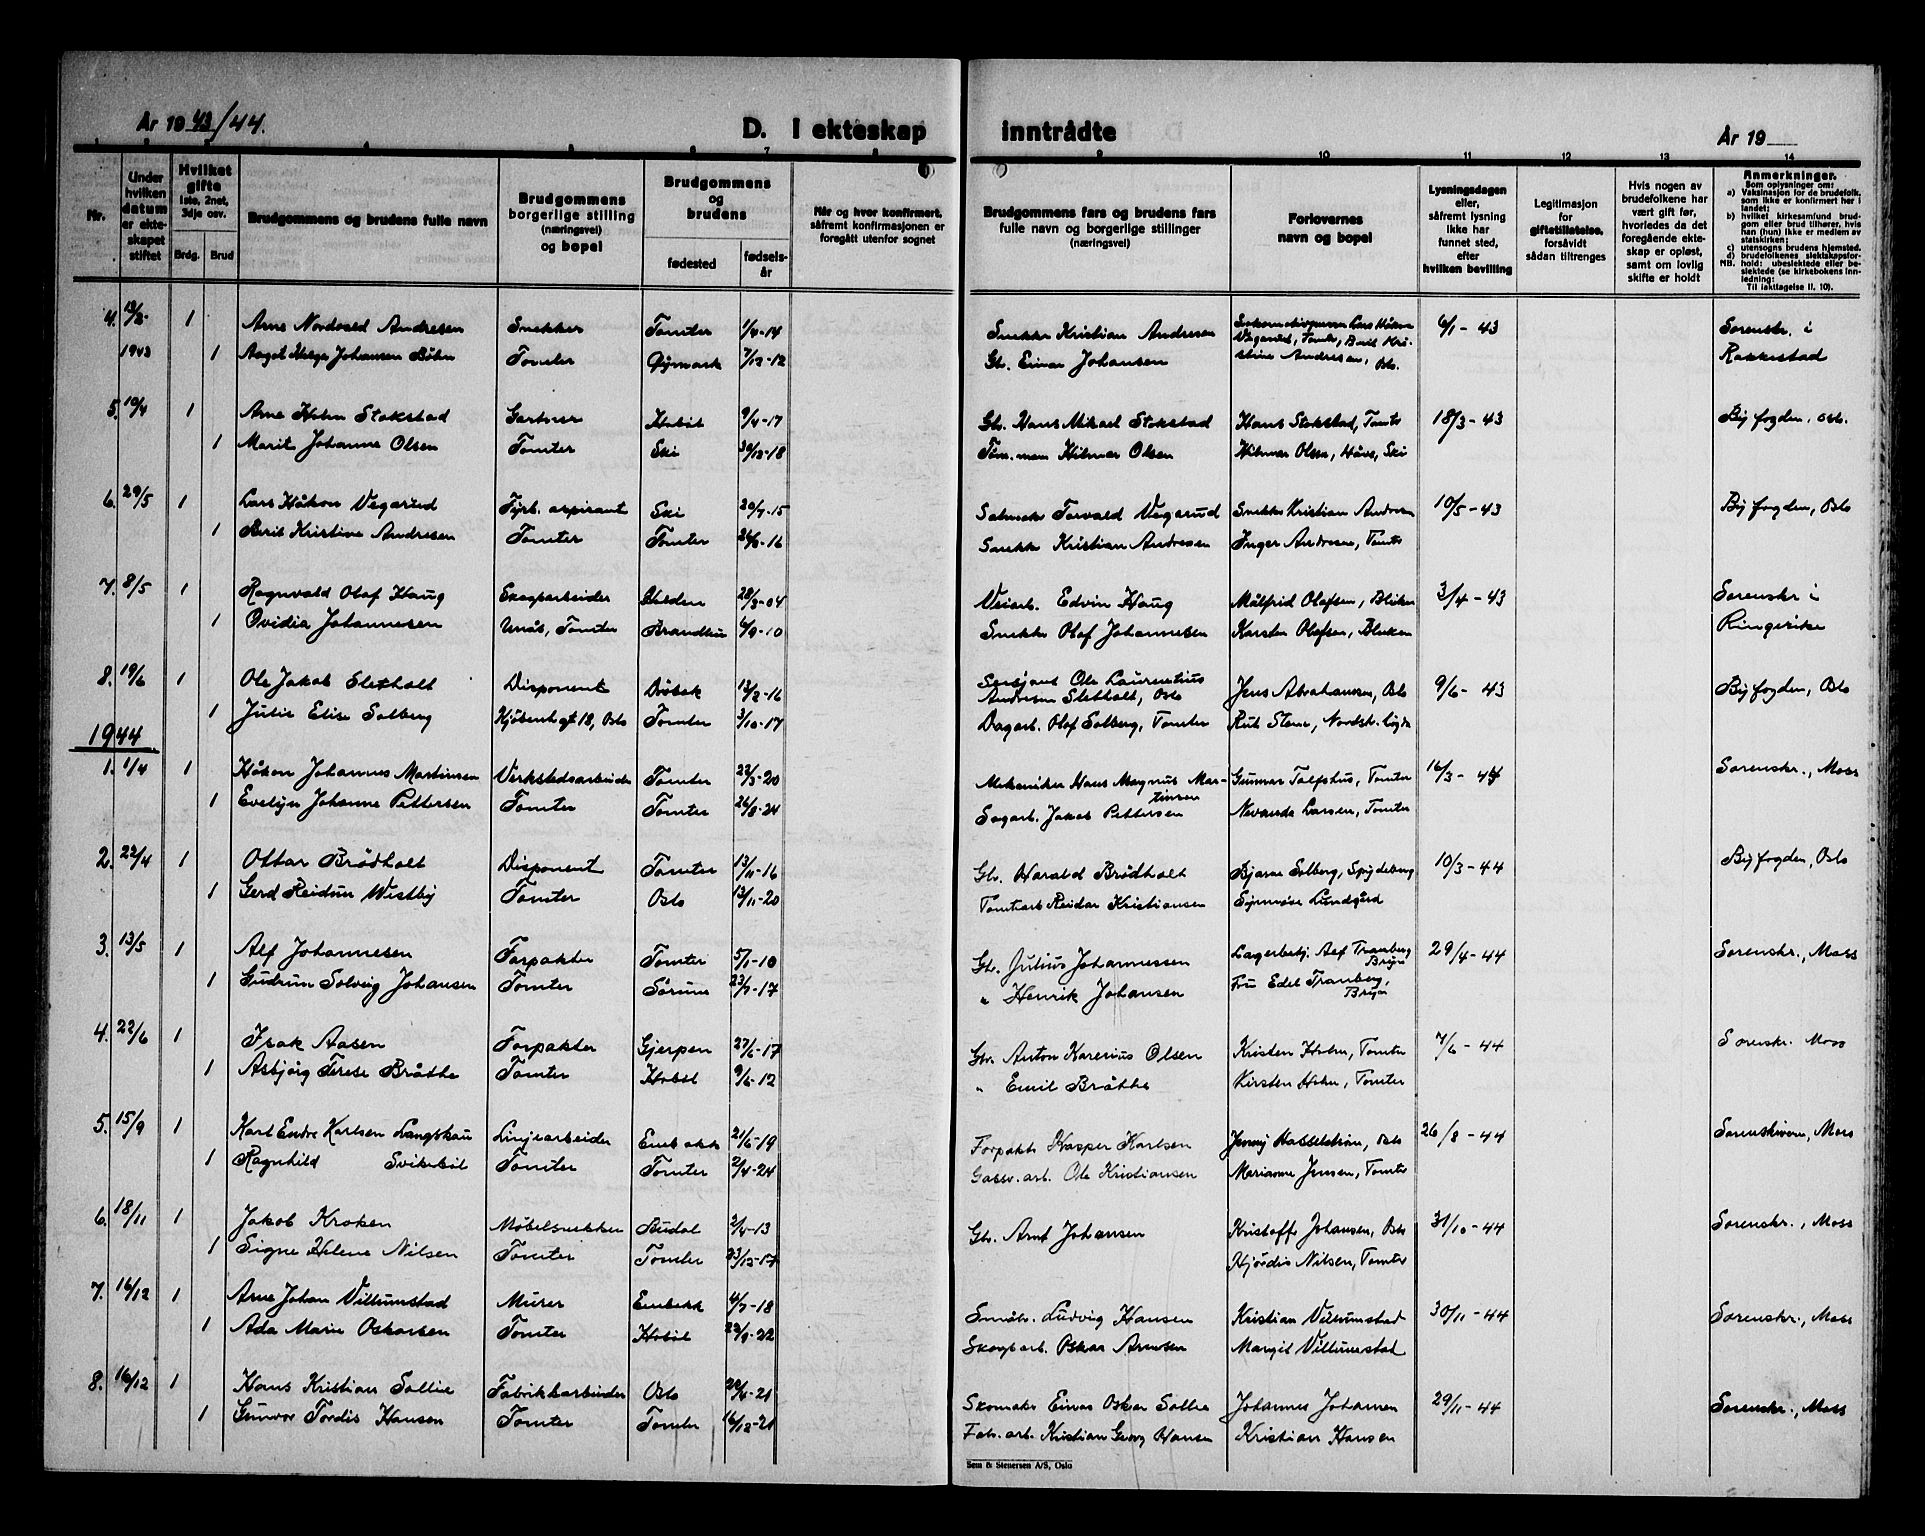 År 1943/44.
D. I ekteskap
inntrådte
År 19
1 2 3 4 5 6 7 8 9 10 11 12 13 14
Nr.
Under hvilken datum er ekteskapet stiftet
Hvilket gifte
1ste, 2net, 3dje osv.
Brdg. Brud
Brudgommens og brudens fulle navn
Brudgommens borgerlige stilling (næringsvei) og bopel
Brudgommens og brudens
fødested
fødselsår
Når og hvor konfirmert, såfremt konfirmasjonen er foregått utenfor sognet
Brudgommens fars og brudens fars fulle navn og borgerlige stillinger (næringsvei)
Forlovernes navn og bopel
Lysningsdagen eller, såfremt lysning ikke har funnet sted, efter hvilken bevilling
Legitimasjon for giftetillatelse, forsåvidt sådan tiltrenges
Hvis nogen av brudefolkene har vært gift før, hvorledes da det foregående ekteskap er opløst, samt om lovlig skifte er holdt
Anmerkninger.
Som oplysninger om:
a) Vaksinasjon for de brudefolk, som ikke er konfirmert her i landet;
b) hvilket kirkesamfund brudgom eller brud tilhører, hvis han (hun) ikke er medlem av statskirken;
c) utensogns brudens hjemsted.
d) brudefolkenes slektskapsforhold: ubeslektede eller beslektede (se kirkebokens innledning:
NB.
Til iakttagelse II. 10).
4. 13/2 1 Arne Nordvald Andresen Snekker Tomter 1/4-14 Snekker Kristian Andresen Lars Håkon 6/1-43 Sorenskr. i
1943 1 Aagot Helga Johansen Bøhn Tomter Øymark 7/12-12 Gb. Einar Johansen Vegarud, Tomter, Berit Kristine Andresen, Oslo. Rakkestad
5. 10/4 1 Arne Holm Stokstad Gartner Hobøl 9/4-17 Gb. Hans Mikael Stokstad Hans Stokstad, Tomter 18/3-43 Byfogden, Oslo.
1 Marit Johanne Olsen Tomter Ski 30/12-18 Tøm.mann Hilmar Olsen Hilmar Olsen, Ski
6. 29/5 1 Lars Håkon Vegarud Fyrb. aspirant Ski 20/7-15 Torvald Vegarud Snekker Kristian Andresen 10/5-43 Byfogden, Oslo
1 Berit Kristine Andresen Tomter Tomter 24/6-16 Snekker Kristian Andresen Inger Andresen, Tomter
7. 8/5 1 Ragnvald Olaf Haug Skogsarbeider Halden 28/3-04 Veiarb. Edvin Haug Målfrid Olafsen, Bliken 3/4-43 Sorenskr. i
1 Ovidia Johannesen Unås, Tomter 6/9-10 Snekker Olaf Johannesen Karsten Olafsen, Bliken Ringerike
8. 19/6 1 Ole Jakob Sletholt Disponent Drøbak 13/2-16 Sersjant Ole Laurentius Andresen Sletholt, Oslo Jens Abrahamsen, Oslo 9/6-43 Byfogden, Oslo
1 Julie Elise Solberg Kjøbenh.gt 18, Oslo Tomter 3/10-17 Dagarb. Olaf Solberg, Tomter Rut Stene, Nordstr.
1944
1. 1/4 1 Håkon Johannes Martinsen Verkstedsarbeider Tomter 22/3-20 Mekaniker Hans Magnus Martinsen Gunnar Talfshus, Tomter 16/3-44 Sorenskr., Moss
1 Evelyn Johanne Pettersen Tomter Tomter 26/8-24 Sagarb. Jakob Pettersen Larsen, Tomter
2. 22/4 1 Ottar Brødholt Disponent Tomter 13/11-16 Gb. Harald Brødholt Bjarne Solberg, Spydeberg 10/3-44 Byfogden, Oslo
1 Gerd Reidun Westby Tomter Oslo 13/11-20 Tomtearb. Reidar Kristiansen Synnøve Lundgård
3. 13/5 1 Alf Johannesen Forpakter Tomter 5/1-10 Gb. Julius Johannessen Lagerbetj. Alf Tranberg Bryn 29/4-44 Sorenskr., Moss
1 Gudrun Solveig Johansen Tomter Sørum 23/7-17 " Henrik Johansen Fru Edel Tranberg, Bryn
4. 22/6 1 Isak Aasen Forpakter Gjerpen 27/6-17 Gb. Anton Karenius Olsen Kristen Holm, Tomter 7/6-44 Sorenskr. Moss
1 Asbjørg Terese Bråthe Tomter Hobøl 9/6-12 " Emil Bråthe Kirsten Holm, Tomter
5. 15/9 1 Karl Endre Karlsen Langskau Linjearbeider Enebakk 21/6-19 Forpakter Kasper Karlsen Jenny Hasselstrøm, Oslo 26/8-44 Sorenskriveren, Moss
1 Ragnhild Svikebøl Tomter Tomter 2/4-24 Gassv.arb. Ole Kristiansen Marianne Jensen, Tomter
6. 18/11 1 Jakob Kroken Møbelsnekker Budal 2/4-13 Gb. Arnt Johansen Kristoffer Johansen, Oslo 31/10-44 Sorenskr., Moss
1 Signe Helene Nilsen Tomter Tomter 23/12-17 Hjørdis Nilsen, Tomter
7. 16/12 1 Arne Johan Villumstad Murer Enebakk 4/7-18 Småbr. Ludvig Hansen Kristian Villumstad 30/11-44 Sorenskr., Moss
1 Ada Marie Oskarsen Tomter Hobøl 22/9-22 Skogsarb. Oskar Arnesen Margit Villumstad
8. 16/12 1 Hans Kristian Sollie Fabrikkarbeider Oslo 20/6-21 Skomaker Einar Oskar Sollie Johannes Johansen 29/11-44 Sorenskr., Moss
1 Gunvor Tordis Hansen Tomter Tomter 16/12-21 Fab.arb. Kristian Georg Hansen Kristian Hansen
Sem & Stenersen A/S, Oslo